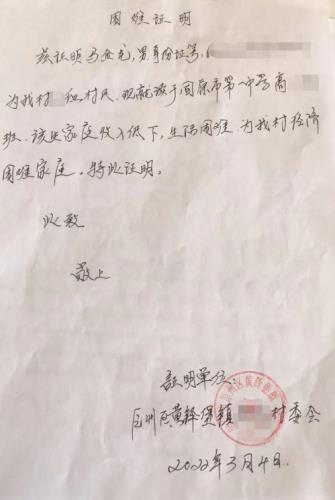 困难证明
兹证明马
男,身份证号,
为我村
村民.现就读于固原市第一中学高
班.该生家庭收入低下,生活困难.为我村经济
困难家庭.特此证明。
此致
敬上
证明单位:
原州区黄铎堡镇
村委会
2022年3月4日.